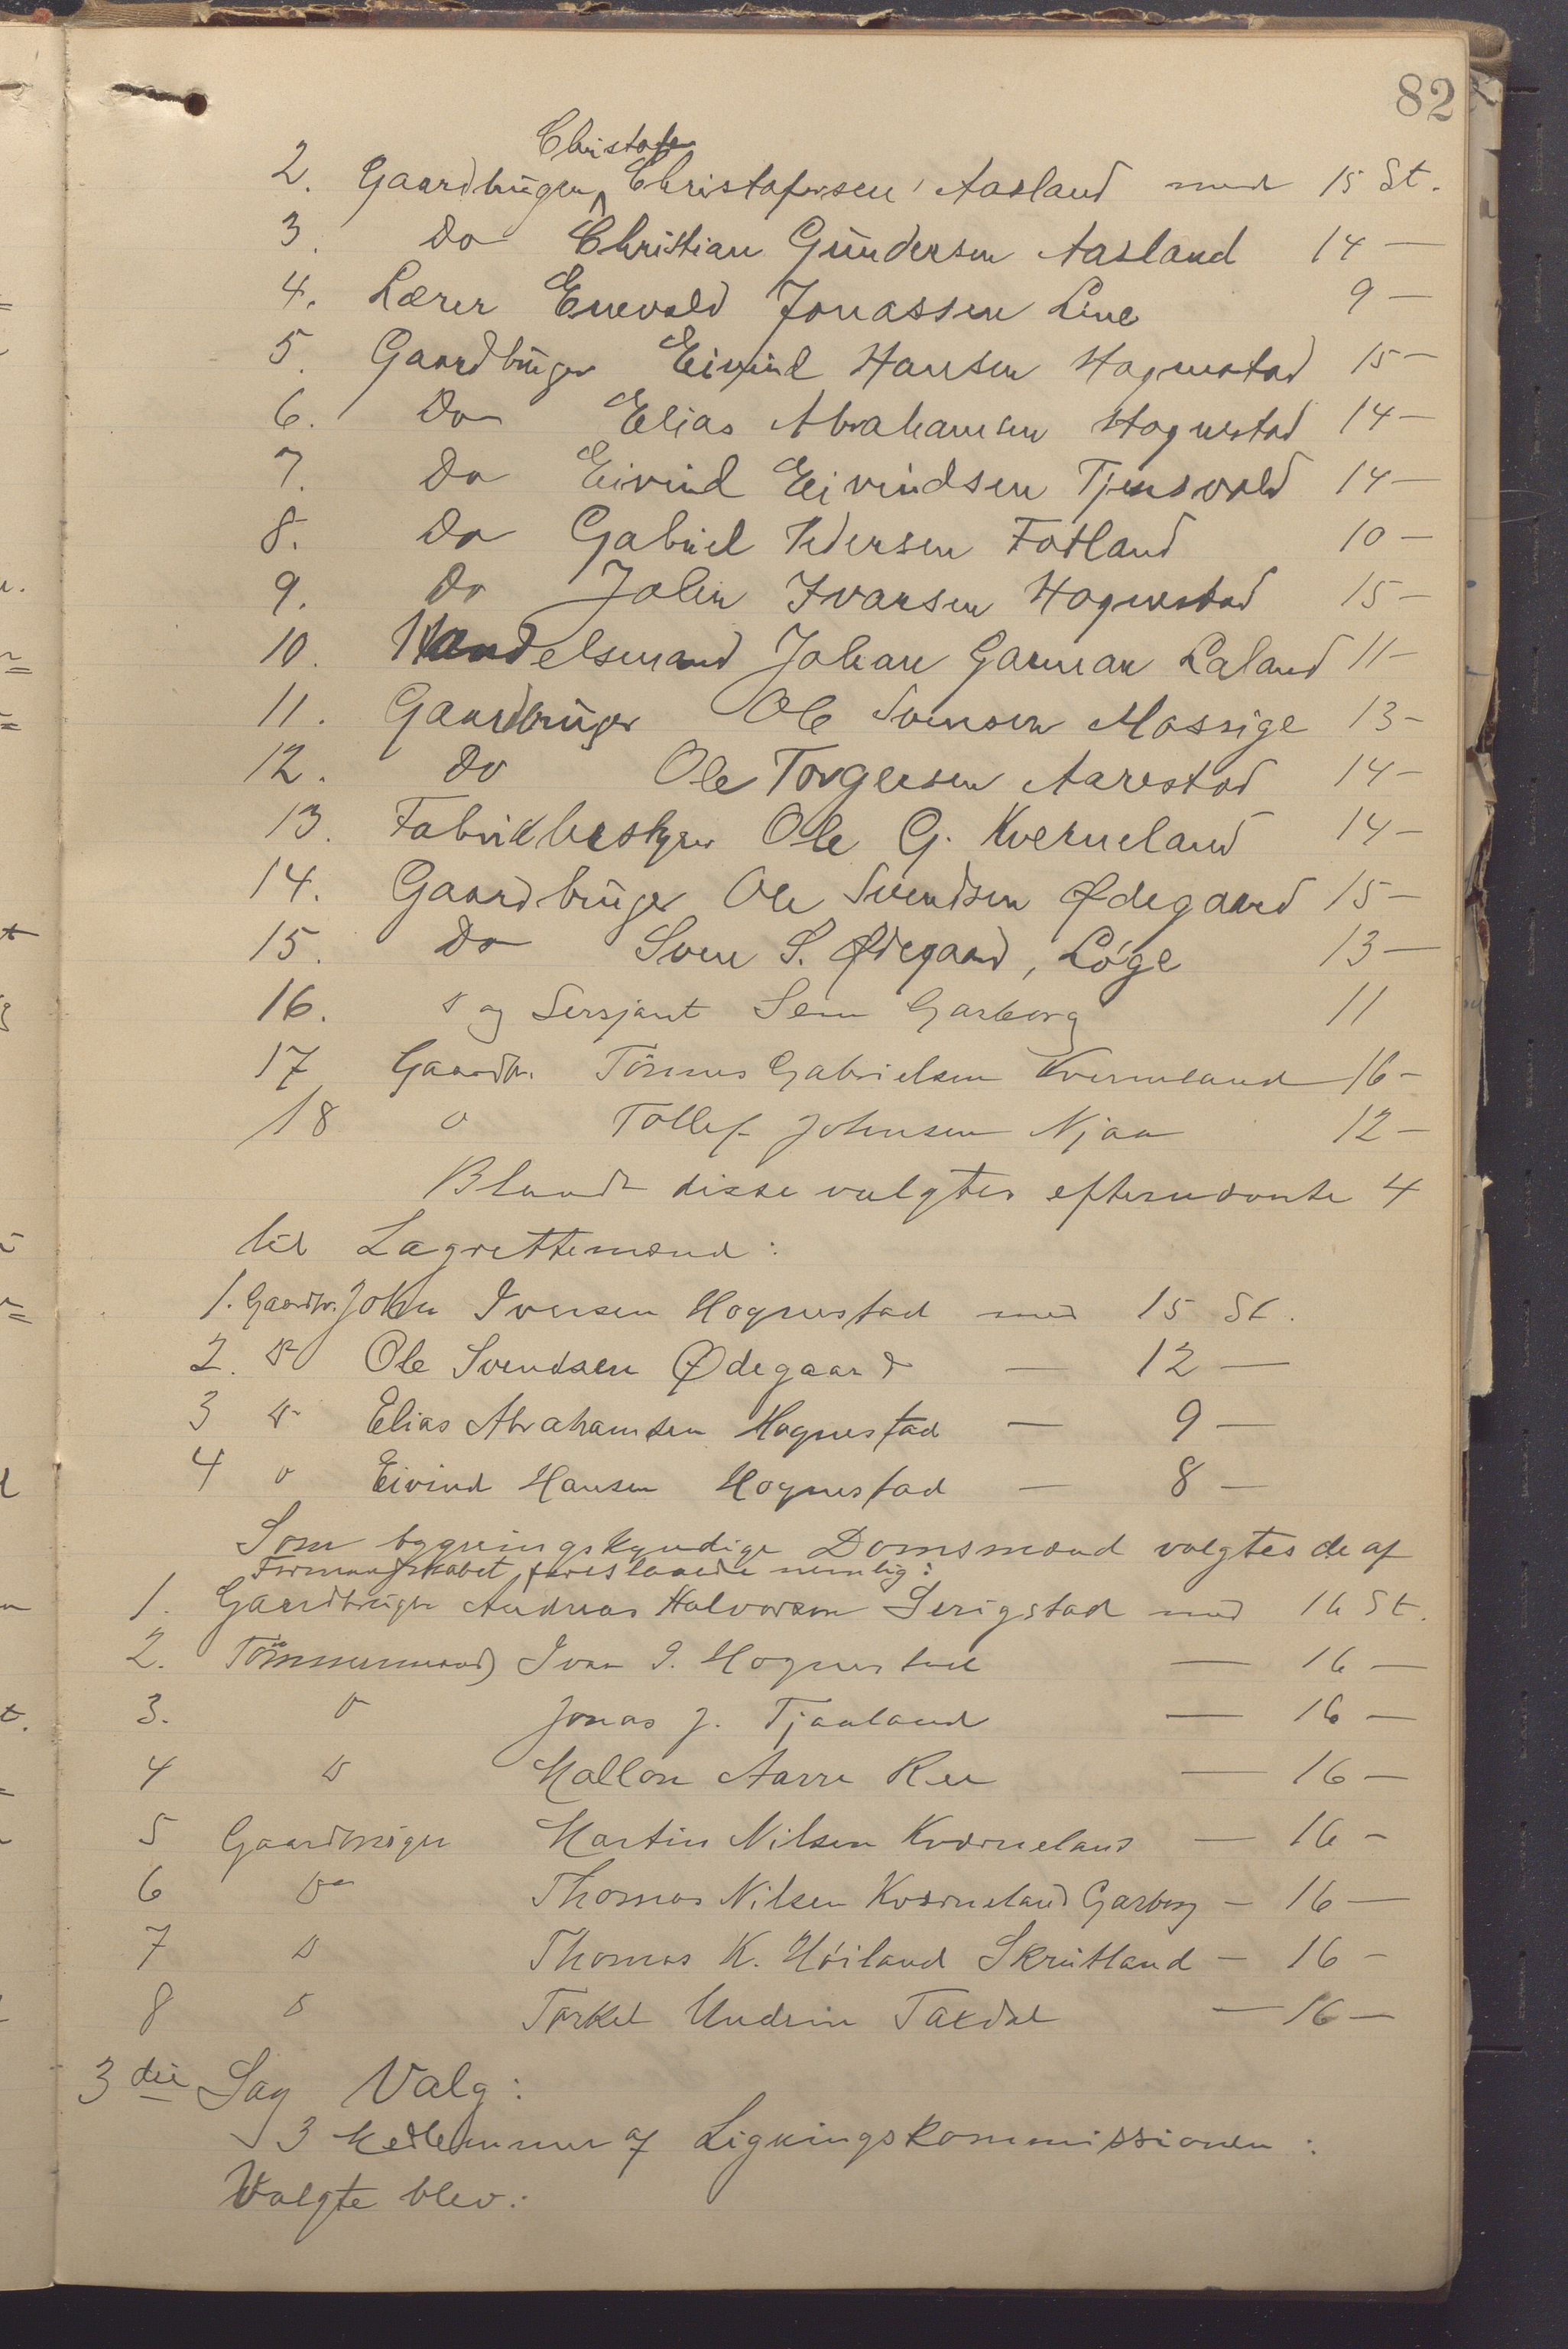 82
Christofer
2. Gaardbruger Christofersen Aasland med 15 St.
3. Do Christian Gundersen Aasland 14 —
4. Lærer Enevald Jonassen Line 9 —
5. Gaardbruger Eivind Hansen Hognestad 15 —
6. Do Elias Abrahamsen Hognestad 14 —
7. Do Eivind Eivindsen Tjensvold 14 —
8. Do Gabriel Pedersen Fotland 10 —
9. Do John Ivarsen Hognestad 15 —
10. Handelsmand Johan Garman Laland 11 —
11. Gaardbruger Ole Svensen Mossige 13 —
12. Do Ole Torgersen Aarestad 14 —
13. Fabrikbestyrer Ole G. Kverneland 14 —
14. Gaardbruger Ole Svendsen Ødegaard 15 —
15. Do Sven S. Ødegaard, Løge 13 —
16. Do og Sersjant Sem Garborg 11
17 Gaardbr. Tönnes Gabrielsen Kverneland 16 —
18 Do Tollef Johnsen Njaa 12 —
Blandt disse valgtes efternævnte 4
til Lagrettemænd:
1. Gaardbr. John Iversen Hognestad med 15 St.
2. Do Ole Svendsen Ødegaard — 12 —
3 Do Elias Abrahamsen Hognestad — 9 —
4 Do Eivind Hansen Hognestad — 8 —
Som bygningskyndige Domsmænd valgtes de af
Formandskabet foreslaaede nemlig:
1. Gaardbruger Andreas Halvorsen Serigstad med 16 St.
2. Tömmermand Ivar I. Hognestad — 16 —
3. Do Jonas J. Tjaaland — 16 —
4 Do Mallon Aarre Ree — 16 —
5 Gaardbruger Martin Nilsen Kværneland — 16 —
6 Do Thomas Nilsen Kværneland Garborg — 16 —
7 Do Thomas K. Höiland Skrutland — 16 —
8 Do Torkel Undrim Taxdal — 16 —
3die Sag Valg:
3 Medlemmer af Ligningskommissionen:
Valgte blev: